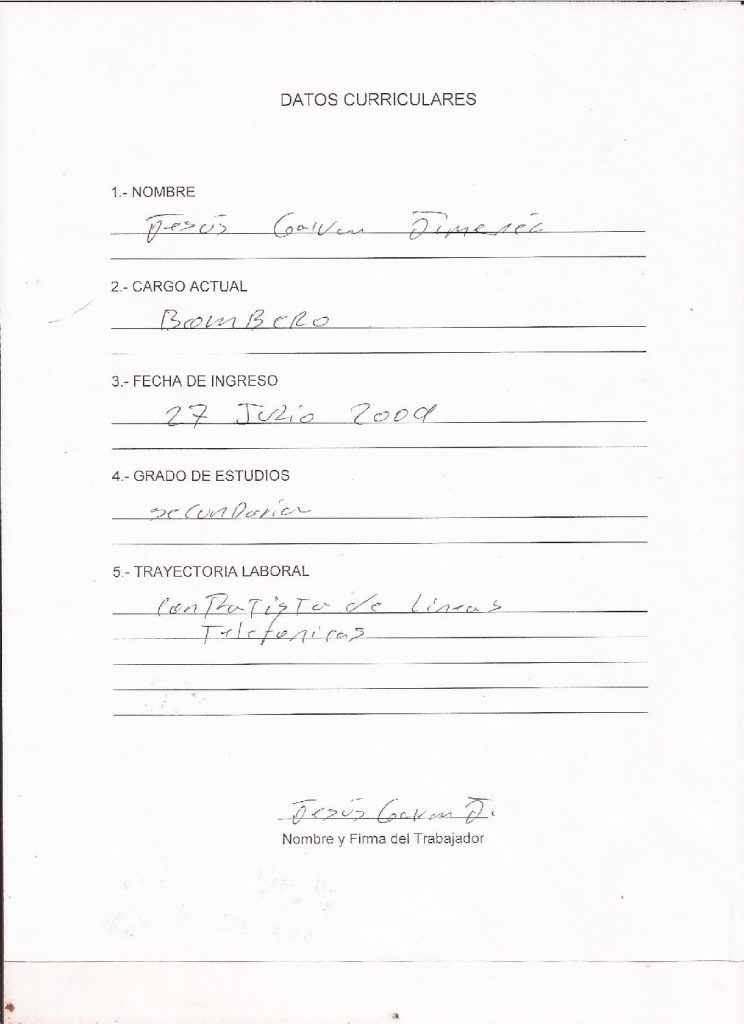 DATOS CURRICULARES
1.- NOMBRE
Jesús Galvan Jimenéz
2.- CARGO ACTUAL
BomBeRo
3.- FECHA DE INGRESO
27 Julio 2009
4.- GRADO DE ESTUDIOS
secunDaria
5.- TRAYECTORIA LABORAL
conTRaTisTa de Lineas
Telefonicas
Jesús Galvan J.
Nombre y Firma del Trabajador